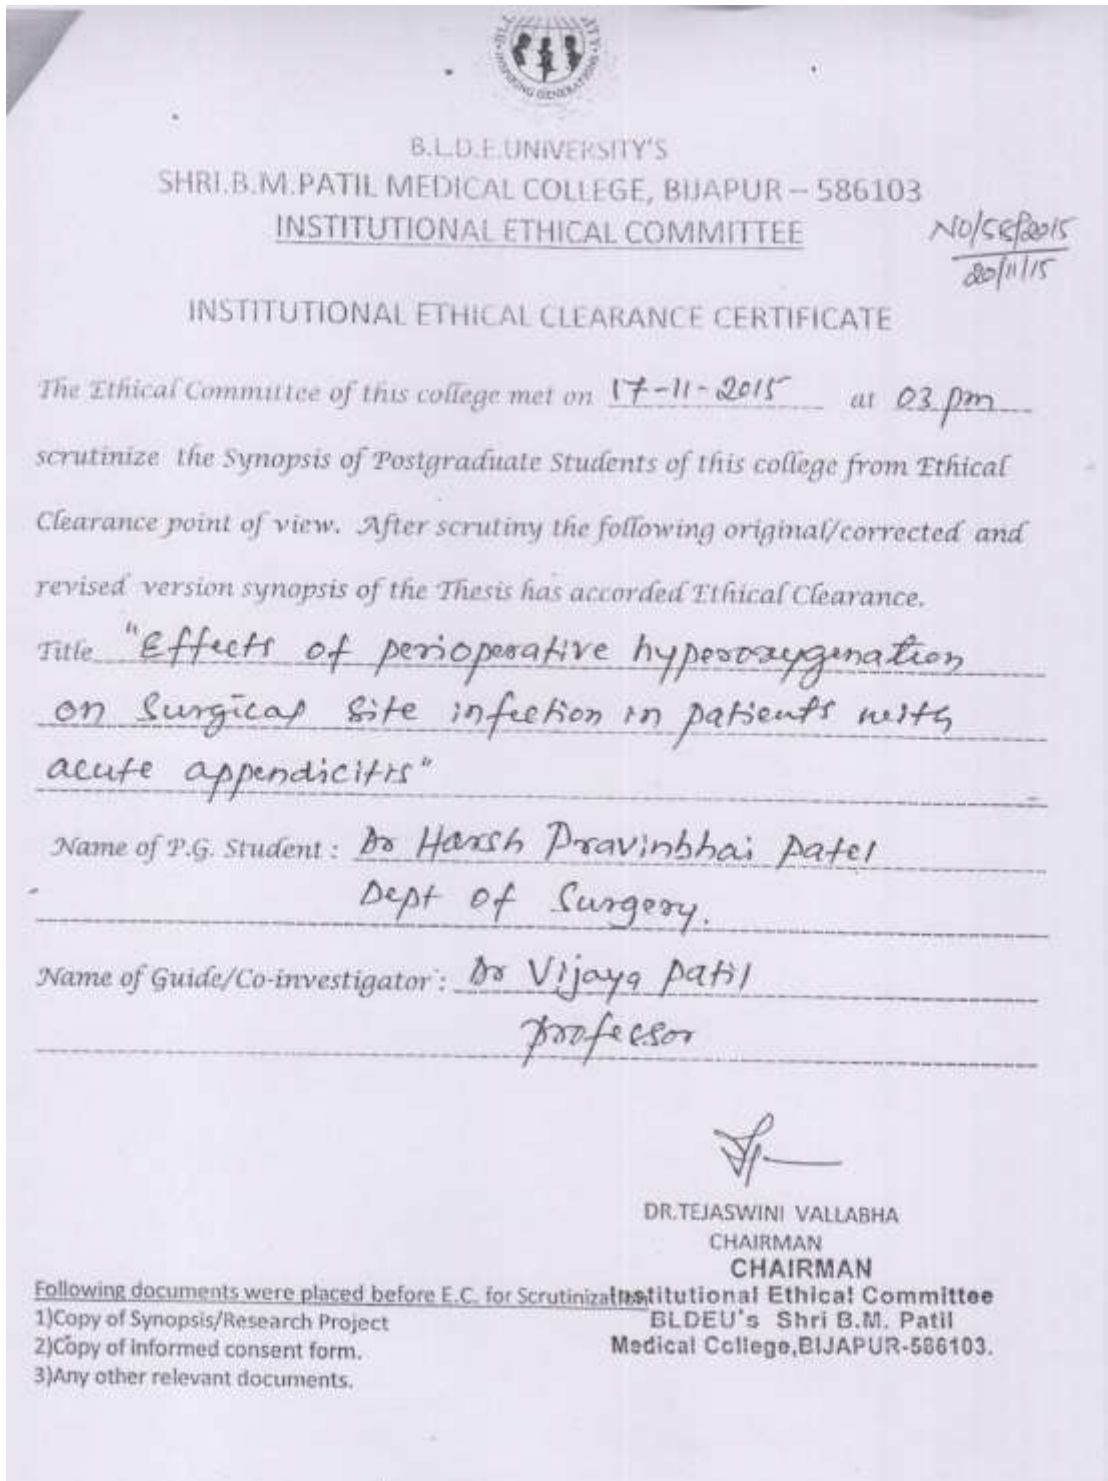 INSPIRING GENERATIONS
B.L.D.E.UNIVERSITY'S
SHRI.B.M.PATIL MEDICAL COLLEGE, BIJAPUR – 586103
INSTITUTIONAL ETHICAL COMMITTEE
20/11/15
INSTITUTIONAL ETHICAL CLEARANCE CERTIFICATE
The Ethical Committee of this college met on 17-11-2015 at 03 pm
scrutinize the Synopsis of Postgraduate Students of this college from Ethical
Clearance point of view. After scrutiny the following original/corrected and
revised version synopsis of the Thesis has accorded Ethical Clearance.
Title "Effects of perioperative hyperoxygenation
on Surgical Site infection in patients with
acute appendicitis"
Name of P.G. Student : Dr Harsh Pravinbhai Patel
Dept of Surgery.
Name of Guide/Co-investigator : Dr Vijaya Patil
professor
DR.TEJASWINI VALLABHA
CHAIRMAN
CHAIRMAN
Institutional Ethical Committee
BLDEU's Shri B.M. Patil
Medical College,BIJAPUR-586103.
Following documents were placed before E.C. for
1)Copy of Synopsis/Research Project
2)Copy of informed consent form.
3)Any other relevant documents.